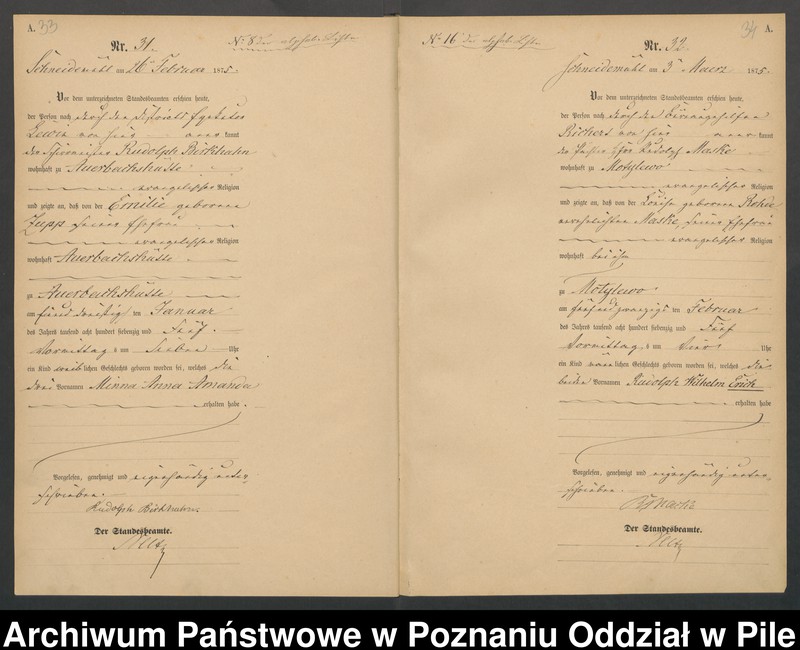 A. 33
Nr. 31.
Nr 8 der alphab. Liste
Schneidemühl am 26 Februar 1875.
Vor dem unterzeichneten Standesbeamten erschien heute,
der Person nach durch den
Lewin von hier kannt
der Rudolph Birkhahn
wohnhaft zu Auerbachshütte
evangelischer Religion
und zeigte an, daß von der Emilie geborene
Zupp seiner Ehefrau
evangelischer Religion
wohnhaft Auerbachshütte
zu Auerbachshütte
am ten Januar
des Jahres tausend acht hundert siebenzig und fünf
Vormittags um sieben Uhr
ein Kind weiblichen Geschlechts geboren worden sei, welches die
drei Vornamen Minna Anna Amanda
erhalten habe.
Vorgelesen, genehmigt und eigenhändig unter-
schrieben.
Rudolph Birkhahn
Der Standesbeamte.
No 16 der alphab. Liste
34 A.
Nr. 32.
Schneidemühl am 3 Maerz 1875.
Vor dem unterzeichneten Standesbeamten erschien heute,
der Person nach durch den Büraugehilfen
Richert von hier kannt
der Rudolph Maske
wohnhaft zu Motylewo
evangelischer Religion
und zeigte an, daß von der Louise geborenen Rohde
verehelichten Maske, seiner Ehefrau
evangelischer Religion
wohnhaft bei ihm
zu Motylewo
am ten Februar
des Jahres tausend acht hundert siebenzig und Fünf
Vormittags um Uhr
ein Kind männlichen Geschlechts geboren worden sei, welches die
beiden Vornamen Rudolph Wilhelm Erich
erhalten habe.
Vorgelesen, genehmigt und eigenhändig unter-
schrieben.
R Maske
Der Standesbeamte.
Archiwum Państwowe w Poznaniu Oddział w Pile